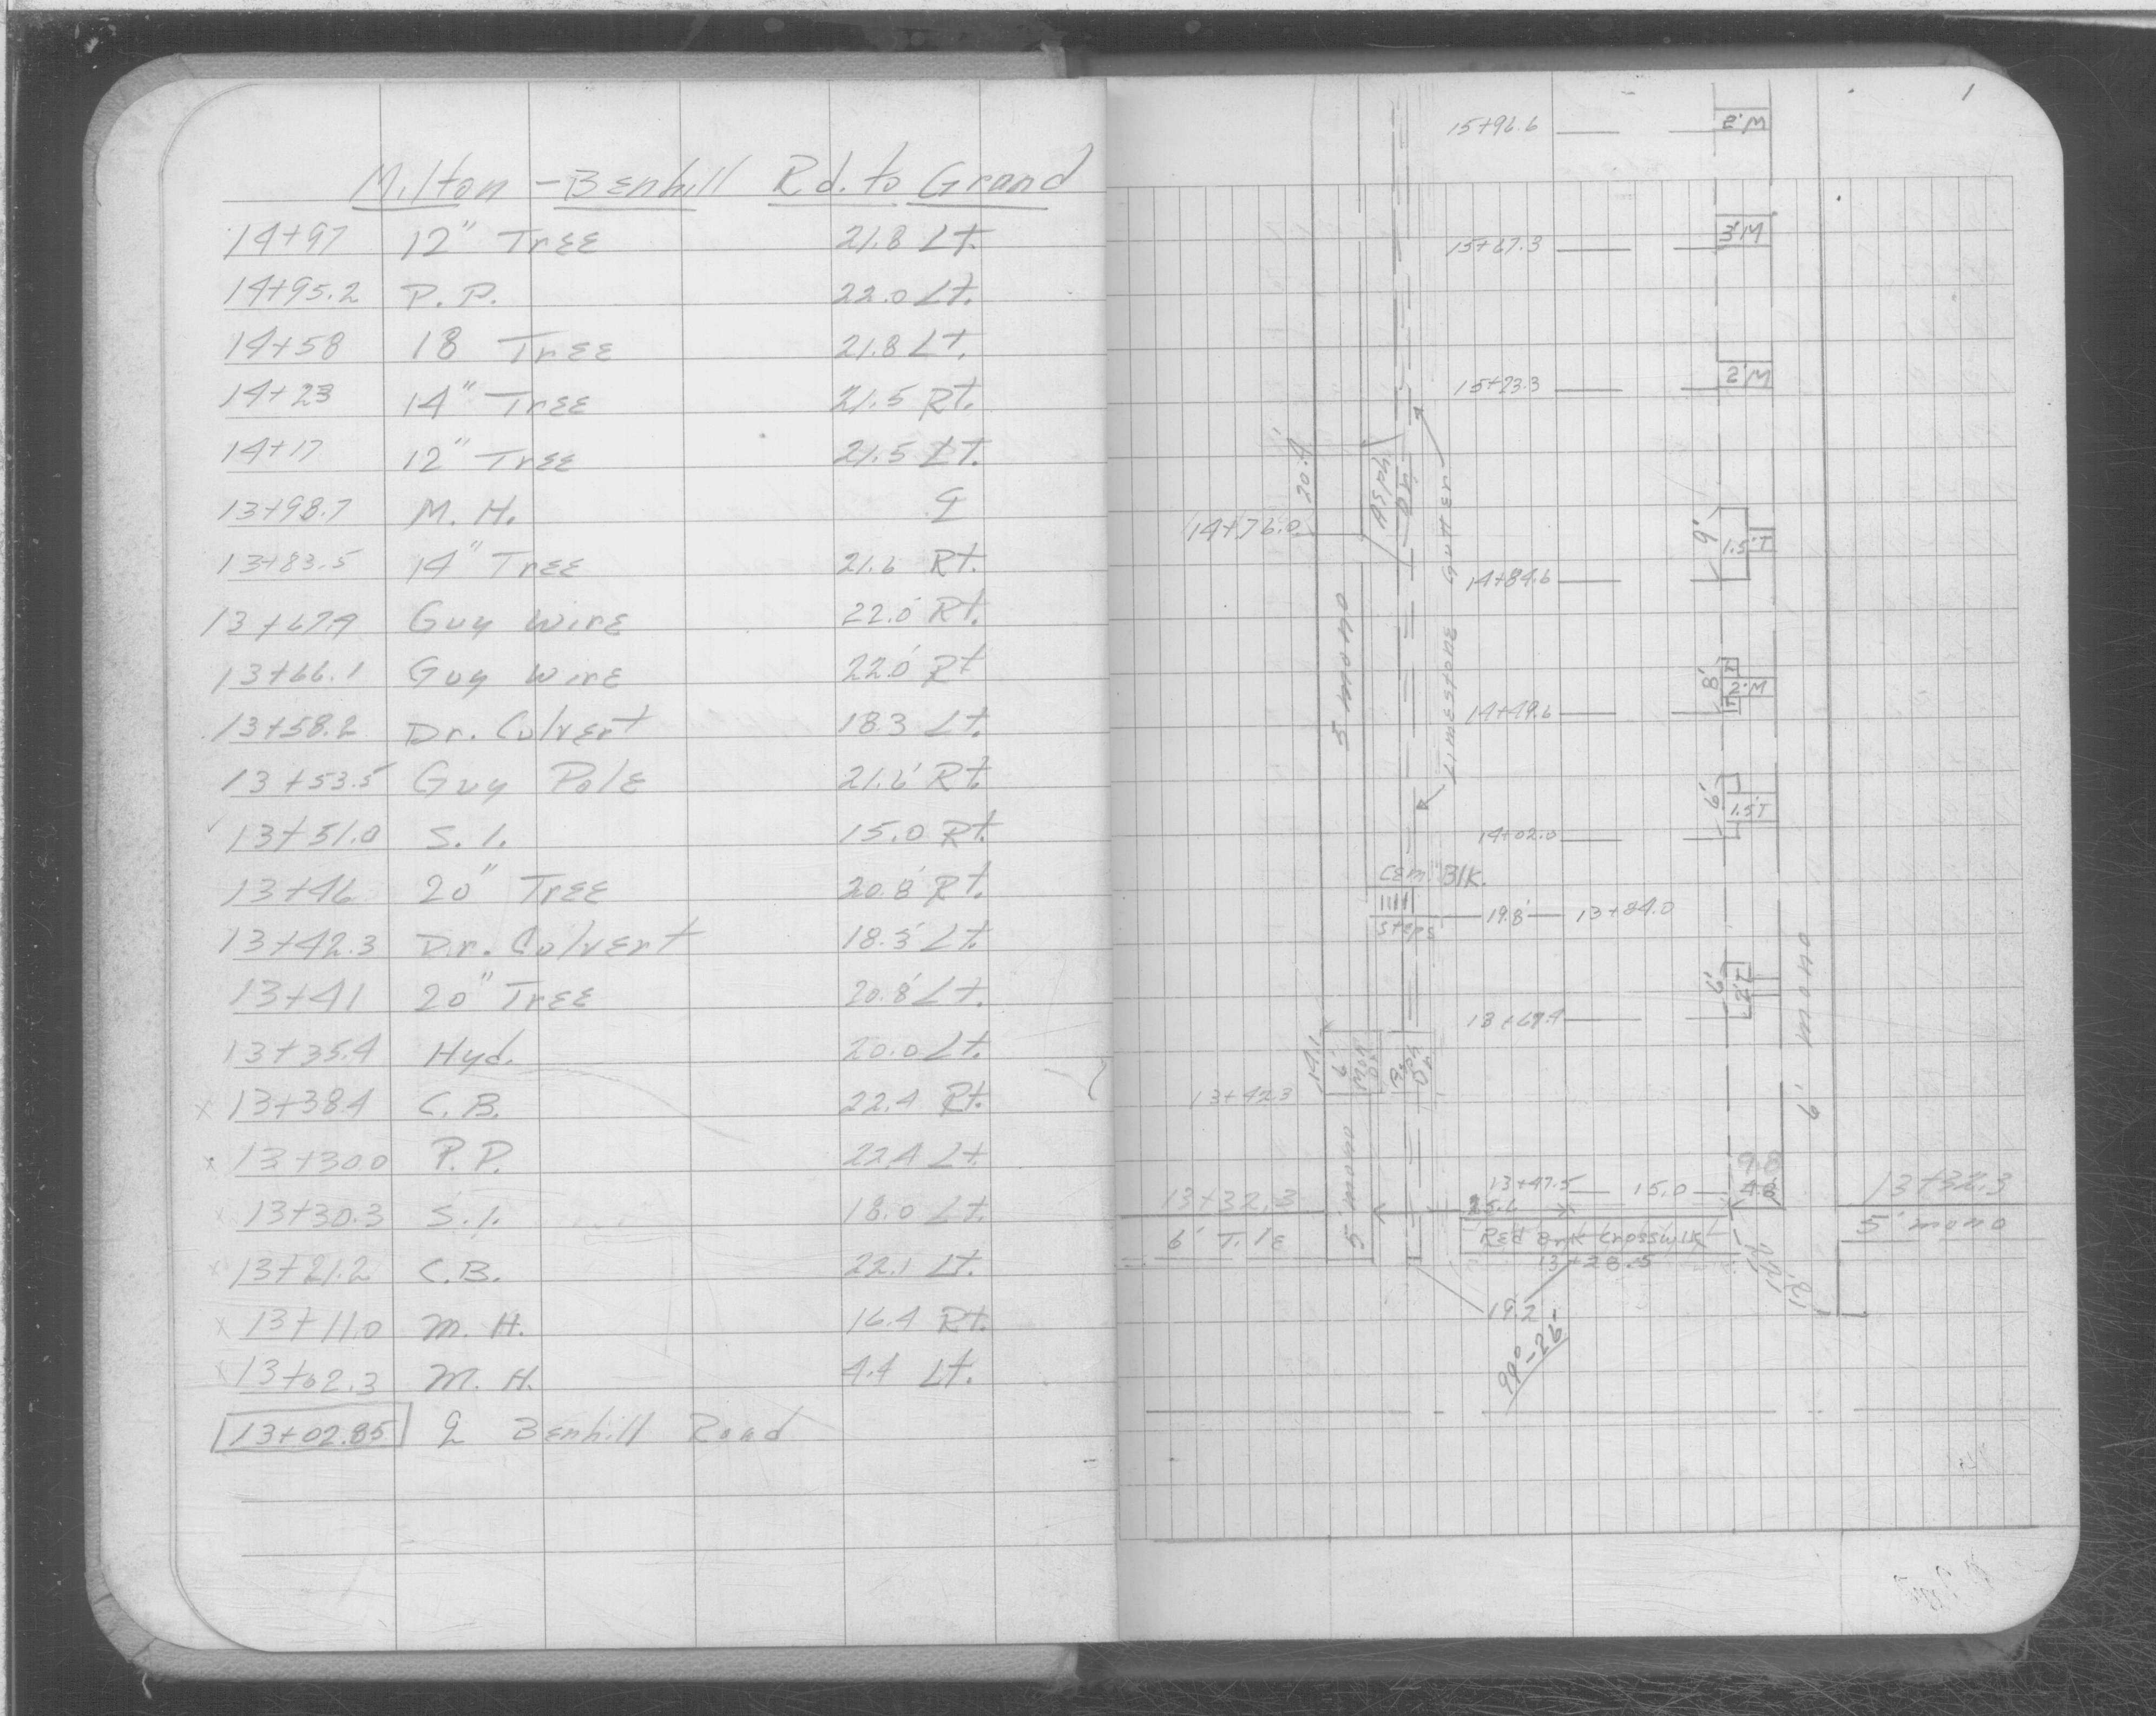 Milton - Benhill Rd. to Grand
14+97 12" Tree 21.8 Lt.
14+95.2 P.P. 22.0 Lt.
14+58 18 Tree 21.8 Lt.
14+23 14" Tree 21.5 Rt.
14+17 12" Tree 21.5 Lt.
13+98.7 M.H. ℄
13+83.5 14" Tree 21.6 Rt.
13+67.9 Guy Wire 22.0' Rt.
13+66.1 Guy Wire 22.0' Rt
13+58.2 Dr. Culvert 18.3 Lt.
13+53.5 Guy Pole 21.6' Rt.
✓ 13+51.0 S.I. 15.0 Rt.
13+46 20" Tree 20.8' Rt.
13+42.3 Dr. Culvert 18.3' Lt.
13+41 20" Tree 20.8' Lt.
13+35.4 Hyd. 20.0 Lt.
x 13+38.4 C.B. 22.4 Rt.
x 13+30.0 P.P. 22.4 Lt.
x 13+30.3 S.I. 18.0 Lt.
x 13+21.2 C.B. 22.1 Lt.
x 13+11.0 M.H. 16.4 Rt.
x 13+02.3 M.H. 4.4 Lt.
13+02.85 ℄ Benhill Road
1
15+96.6 2' M
15+67.3 3' M
15+23.3 2' M
20.4'
Asph.
Dr.
14+76.0
9'
1.5' T
14+84.6
Limestone Gutter
5 mono
8'
T
2' M
T
14+49.6
6'
1.5' T
14+02.0
Cem. Blk.
Steps 19.8' 13+84.0
6'
2' T
6' mono
13+69.4
19.1
6'
Mon
Dr.
Asph
Dr.
13+42.3
5' mono
9.8
13+47.5 15.0 4.8
13+32.3 25.6 13+32.3
6' Tile Red Brk Crosswlk 5' mono
13+28.5
19.2
99°-26'